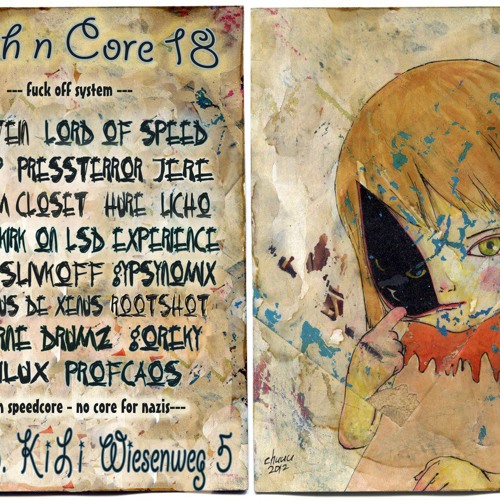 h n Core 18
--- fuck off system ---
LORD OF SPEED
PRESSTERROR JERE
CLOSET HURE LICHO
KIRK ON LSD EXPERIENCE
SLIVKOFF GYPSYNOMIX
US DE XENUS ROOTSHOT
RNE DRUMZ GOREKY
LUX PROFCAOS
speedcore - no core for nazis---
KiLi Wiesenweg 5
2012